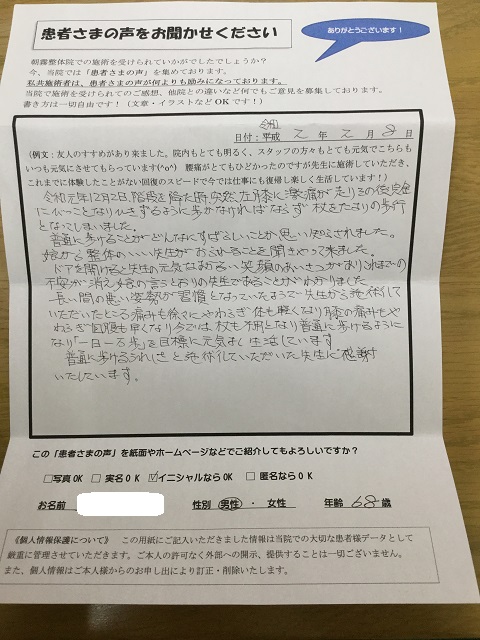 患者さまの声をお聞かせください
ありがとうございます！
朝霧整体院での施術を受けられていかがでしたでしょうか？
今、当院では「患者さまの声」を集めております。
私共施術者は、患者さまの声が何よりも励みになっております。
当院で施術を受けられてのご感想、他院との違いなど何でもご意見を募集しております。
書き方は一切自由です！（文章・イラストなどOKです！）
令和
日付：平成 2 年 2 月 8 日
（例文：友人のすすめがあり来ました。院内もとても明るく、スタッフの方々もとても元気でこちらも
いつも元気にさせてもらっています(^o^) 腰痛がとてもひどかったのですが先生に施術していただき、
これまでに体験したことがない回復のスピードで今では仕事にも復帰し楽しく生活しています！）
令和元年12月2日、階段を降りた所突然左膝に激痛が走りその後完全
にびっことなりひきずるように歩かなければならず杖をたよりの歩行
となってしまいました。
普通に歩けることがどんなにすばらしいことか思い知らされました。
娘から整体のいい先生がおられることを聞きやって来ました。
ドアを開けると先生の元気な明るい笑顔のあいさつがありこれまでの
不安が消え娘の言うとおりの先生であることがわかりました。
長い間の悪い姿勢が習慣となっていたようで先生から施術して
いただいたところ痛みも徐々にやわらぎ体も軽くなり膝の痛みもや
わらぎ回復も早くなり今では杖も不用となり普通に歩けるように
なり「一日一万歩」を目標に元気よく生活しています
普通に歩けるうれしさと施術していただいた先生に感謝
いたしています。
この「患者さまの声」を紙面やホームページなどでご紹介してもよろしいですか？
□写真OK □実名OK ☑イニシャルならOK □匿名ならOK
お名前 性別 男性 ・ 女性 年齢 68 歳
《個人情報保護について》 この用紙にご記入いただきました情報は当院での大切な患者様データとして
厳重に管理させていただきます。ご本人の許可なく外部への開示、提供することは一切ございません。
また、個人情報はご本人様からのお申し出により訂正・削除いたします。